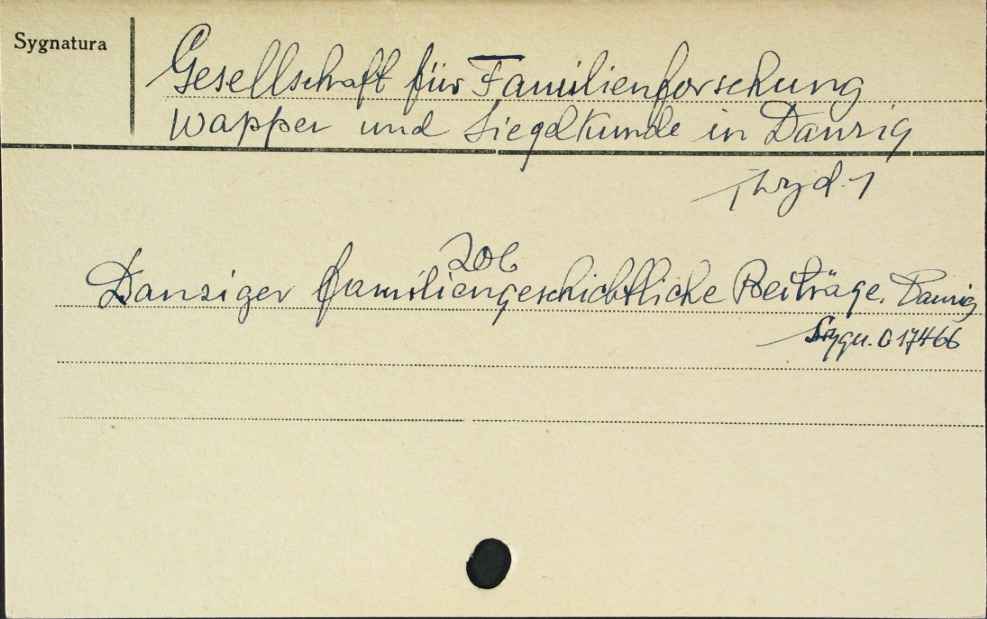 Sygnatura
Gesellschaft für Familienforschung
Wappen und Siegelkunde in Danzig
Wyd. 1
zob
Danziger familiengeschichtliche Beiträge. Danzig
Sygn. C 17466